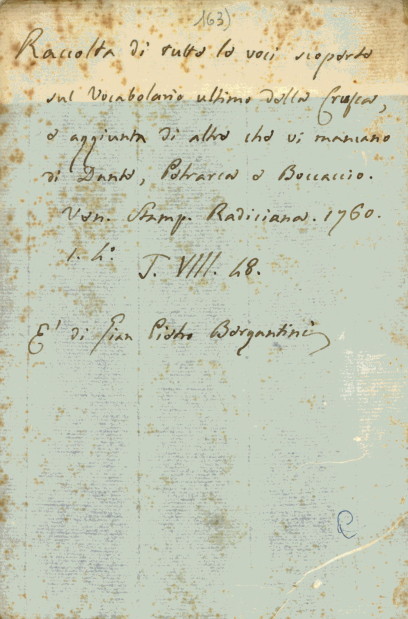 163)
Raccolta di tutte le voci scoperte
sul Vocabolario ultimo della Crusca,
e aggiunta di altre che vi mancano
di Dante, Petrarca e Boccaccio.
Ven. Stamp. Radiciana. 1760.
1. 4.º
J. VIII. 48.
E' di Gian Pietro Bergantini